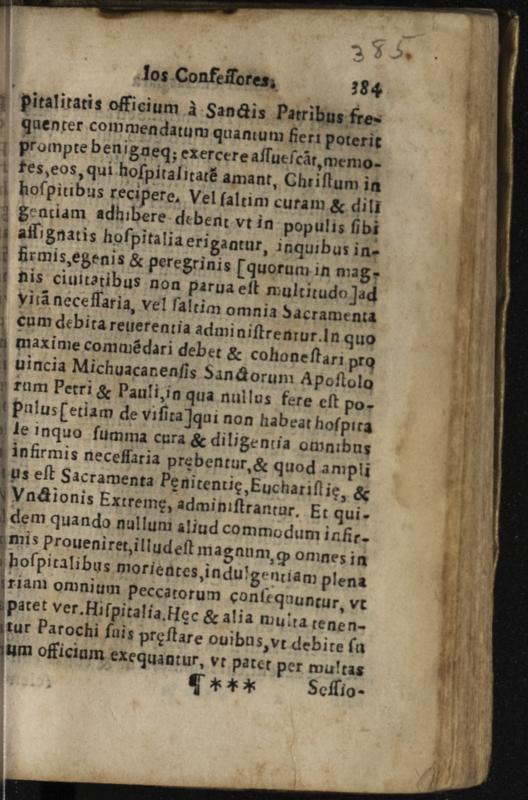 385.
Ios Confeſſores.
384
pitalitatis officium à Sanctis Patribus fre-
quenter commendatum quantum fieri poterit
prompte benigneq; exercere aſſueſcãt, memo-
res, eos, qui hoſpitalitatẽ amant, Chriſtum in
hoſpitibus recipere. Vel ſaltim curam & dili
gentiam adhibere debent vt in populis ſibi
aſſignatis hoſpitalia erigantur, inquibus in-
firmis, egenis & peregrinis [quorum in mag-
nis ciuitatibus non parua eſt multitudo] ad
vitã neceſſaria, vel ſaltim omnia Sacramenta
cum debita reuerentia adminiſtrentur. In quo
maxime commẽdari debet & cohoneſtari pro
uincia Michuacanenſis Sanctorum Apoſtolo
rum Petri & Pauli, in qua nullus fere eſt po-
pulus [etiam de viſita] qui non habeat hoſpita
le inquo ſumma cura & diligentia omnibus
infirmis neceſſaria prębentur, & quod ampli
us eſt Sacramenta Pęnitentię, Euchariſtię, &
Vnctionis Extremę, adminiſtrantur. Et qui-
dem quando nullum aliud commodum infir-
mis proueniret, illud eſt magnum, ꝙ omnes in
hoſpitalibus morientes, indulgentiam plena
riam omnium peccatorum conſequuntur, vt
patet ver. Hiſpitalia. Hęc & alia multa tenen-
tur Parochi ſuis pręſtare ouibus, vt debite ſu
um officium exequantur, vt patet per multas
¶*** Seſſio-